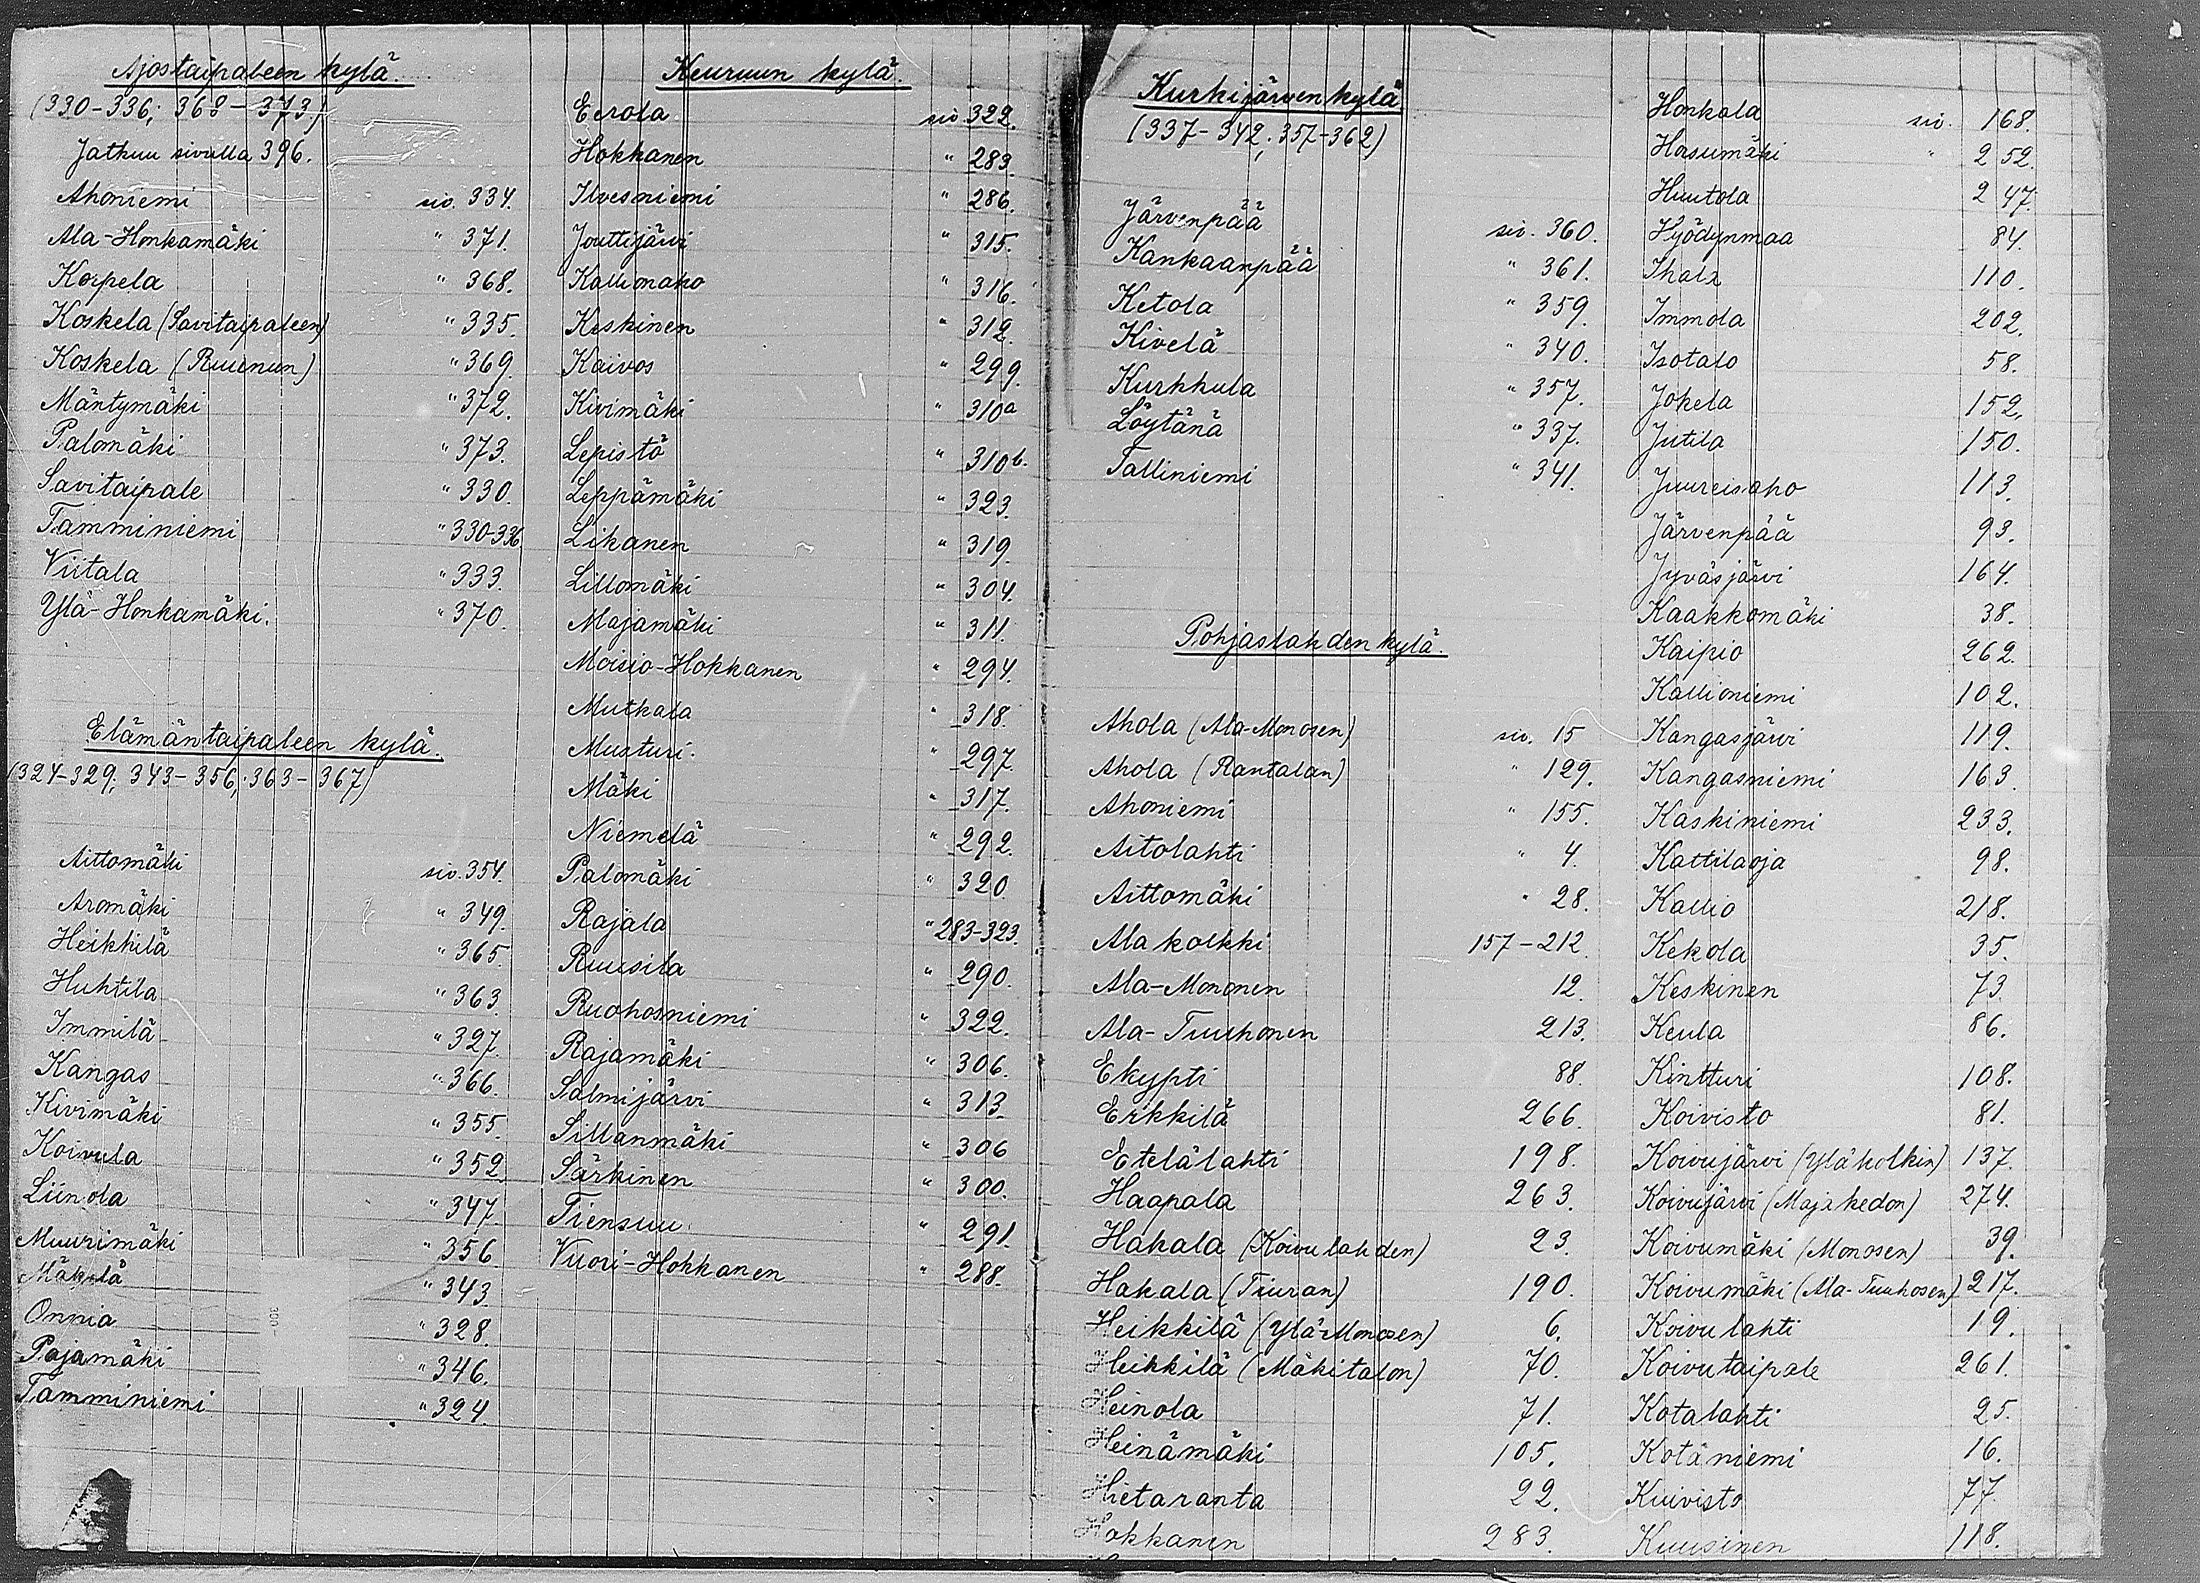 Ajostaipaleen kylä.
(330-336; 368-373.)
Jatkuu sivulla 396.
Ahoniemi siv. 334.
Ala-Honkamäki " 371.
Korpela " 368.
Koskela (Savitaipaleen) " 335.
Koskela (Ruunun) " 369.
Mäntymäki " 372.
Palomäki " 373.
Savitaipale " 330.
Tamminiemi " 330-336
Viitala " 333.
Ylä-Honkamäki. " 370.
Elämäntaipaleen kylä.
(324-329; 343-356; 363-367)
Aittomäki siv. 354.
Aromäki " 349.
Heikkilä " 365.
Huhtila " 363.
Immilä " 327.
Kangas " 366.
Kivimäki " 355.
Koivula " 352.
Liinola " 347.
Muurimäki " 356.
Mäkelä " 343.
Onnia " 328.
Pajamäki " 346.
Tamminiemi " 324.
Keuruun kylä.
Eerola siv 322.
Hokkanen " 283.
Ilvesniemi " 286.
Jouttijärvi " 315.
Kallionaho " 316.
Keskinen " 312.
Kaivos " 299.
Kivimäki " 310a
Lepistö " 310b.
Leppämäki " 323.
Likanen " 319.
Lillomäki " 304.
Majamäki " 311.
Moisio-Hokkanen " 294.
Mutkala " 318.
Musturi. " 297.
Mäki " 317.
Niemelä " 292.
Palomäki " 320.
Rajala " 283-323.
Ruusila " 290.
Ruohosniemi " 322.
Rajamäki " 306.
Salmijärvi " 313.
Sillanmäki " 306
Särkinen " 300.
Tiensuu " 291.
Vuori-Hokkanen " 288.
Kurkijärven kylä
(337-342; 357-362)
Järvenpää siv. 360.
Kankaanpää " 361.
Ketola " 359.
Kivelä " 340.
Kurkkula " 357.
Löytänä " 337.
Talliniemi " 341.
Pohjaslahden kylä.
Ahola (Ala-Monosen) siv. 15
Ahola (Rantalan) " 129.
Ahoniemi " 155.
Aitolahti " 4.
Aittomäki " 28.
Ala kolkki 157-212.
Ala-Mononen 12.
Ala-Tuuhonen 213.
Ekypti 88.
Erkkilä 266.
Etelälahti 198.
Haapala 263.
Hakala (Koivulahden) 23.
Hakala (Tiuran) 190.
Heikkilä (Ylä-Monosen) 6.
Heikkilä (Mäkitalon) 70.
Heinola 71.
Heinämäki 105.
Hietaranta 22.
Hokkanen 283.
Honkala siv. 168.
Horsumäki " 252.
Huutola 247.
Hyödynmaa 84.
Ihala 110.
Immola 202.
Isotalo 58.
Jokela 152.
Jutila 150.
Juureisaho 113.
Järvenpää 93.
Jyväsjärvi 164.
Kaakkomäki 38.
Kaipio 262.
Kallioniemi 102.
Kangasjärvi 119.
Kangasniemi 163.
Kaskiniemi 233.
Kattilaoja 98.
Kallio 218.
Kekola 35.
Keskinen 73.
Keula 86.
Kintturi 108.
Koivisto 81.
Koivujärvi (Yläkolkin) 137.
Koivujärvi (Majakedon) 274.
Koivumäki (Monosen) 39.
Koivumäki (Ala-Tuuhosen) 217.
Koivulahti 19.
Koivutaipale 261.
Kotalahti 25.
Kotaniemi 16.
Kuivisto 77.
Kuusinen 118.